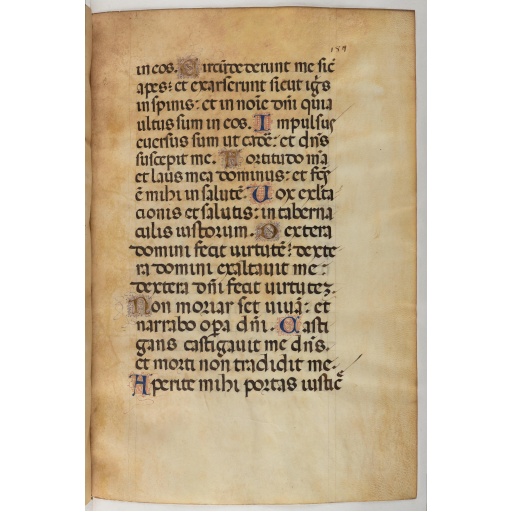 189
in eos. Circūdederunt me sic̄
apes: et exarserunt sicut igīs
in spinis: et in noīe dn̄i quia
ultus sum in eos. Impulsus
euersus sum ut cadē: et dn̄s
suscepit me. Fortitudo m̄a
et laus mea dominus: et
ē mihi in salutē Uox exlta
cionis et salutis: in taberna
culis iustorum. Dextera
domini fecit uirtutē: dexte
ra domini exaltauit me:
dextera dn̄i fecit uirtutez.
Non moriar set uiuā: et
narrabo op̄a dn̄i. Casti
gans castigauit me dn̄s.
et morti non tradidit me.
Aperite mihi portas iustic̄